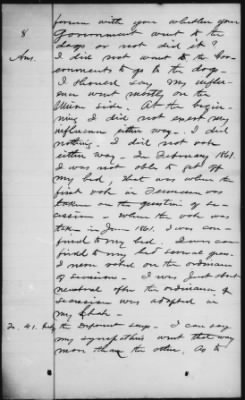 favor with you whether your
8. Government went to the
dogs or not did it?
Ans. I did not want to the Gov-
ernment to go to the dogs-
I should say my influ-
ence went mostly on the
Union side. At the begin-
ning I did not exert my
influence either way. I did
nothing. I did not vote
either way - In February 1861.
I was not able to get off
my bed, that was when the
first vote in Tennessee was
taken on the question of se-
cession - When the vote was
taken in June 1861. I was con-
fined to my bed. I was con-
fined to my bed several years
I never voted on the ordinance
of secession - I was just about
neutral after the ordinance of
secession was adopted in
my State -
To 41. the Deponent says - I can say
my sympathies went that way
more than the other. As to